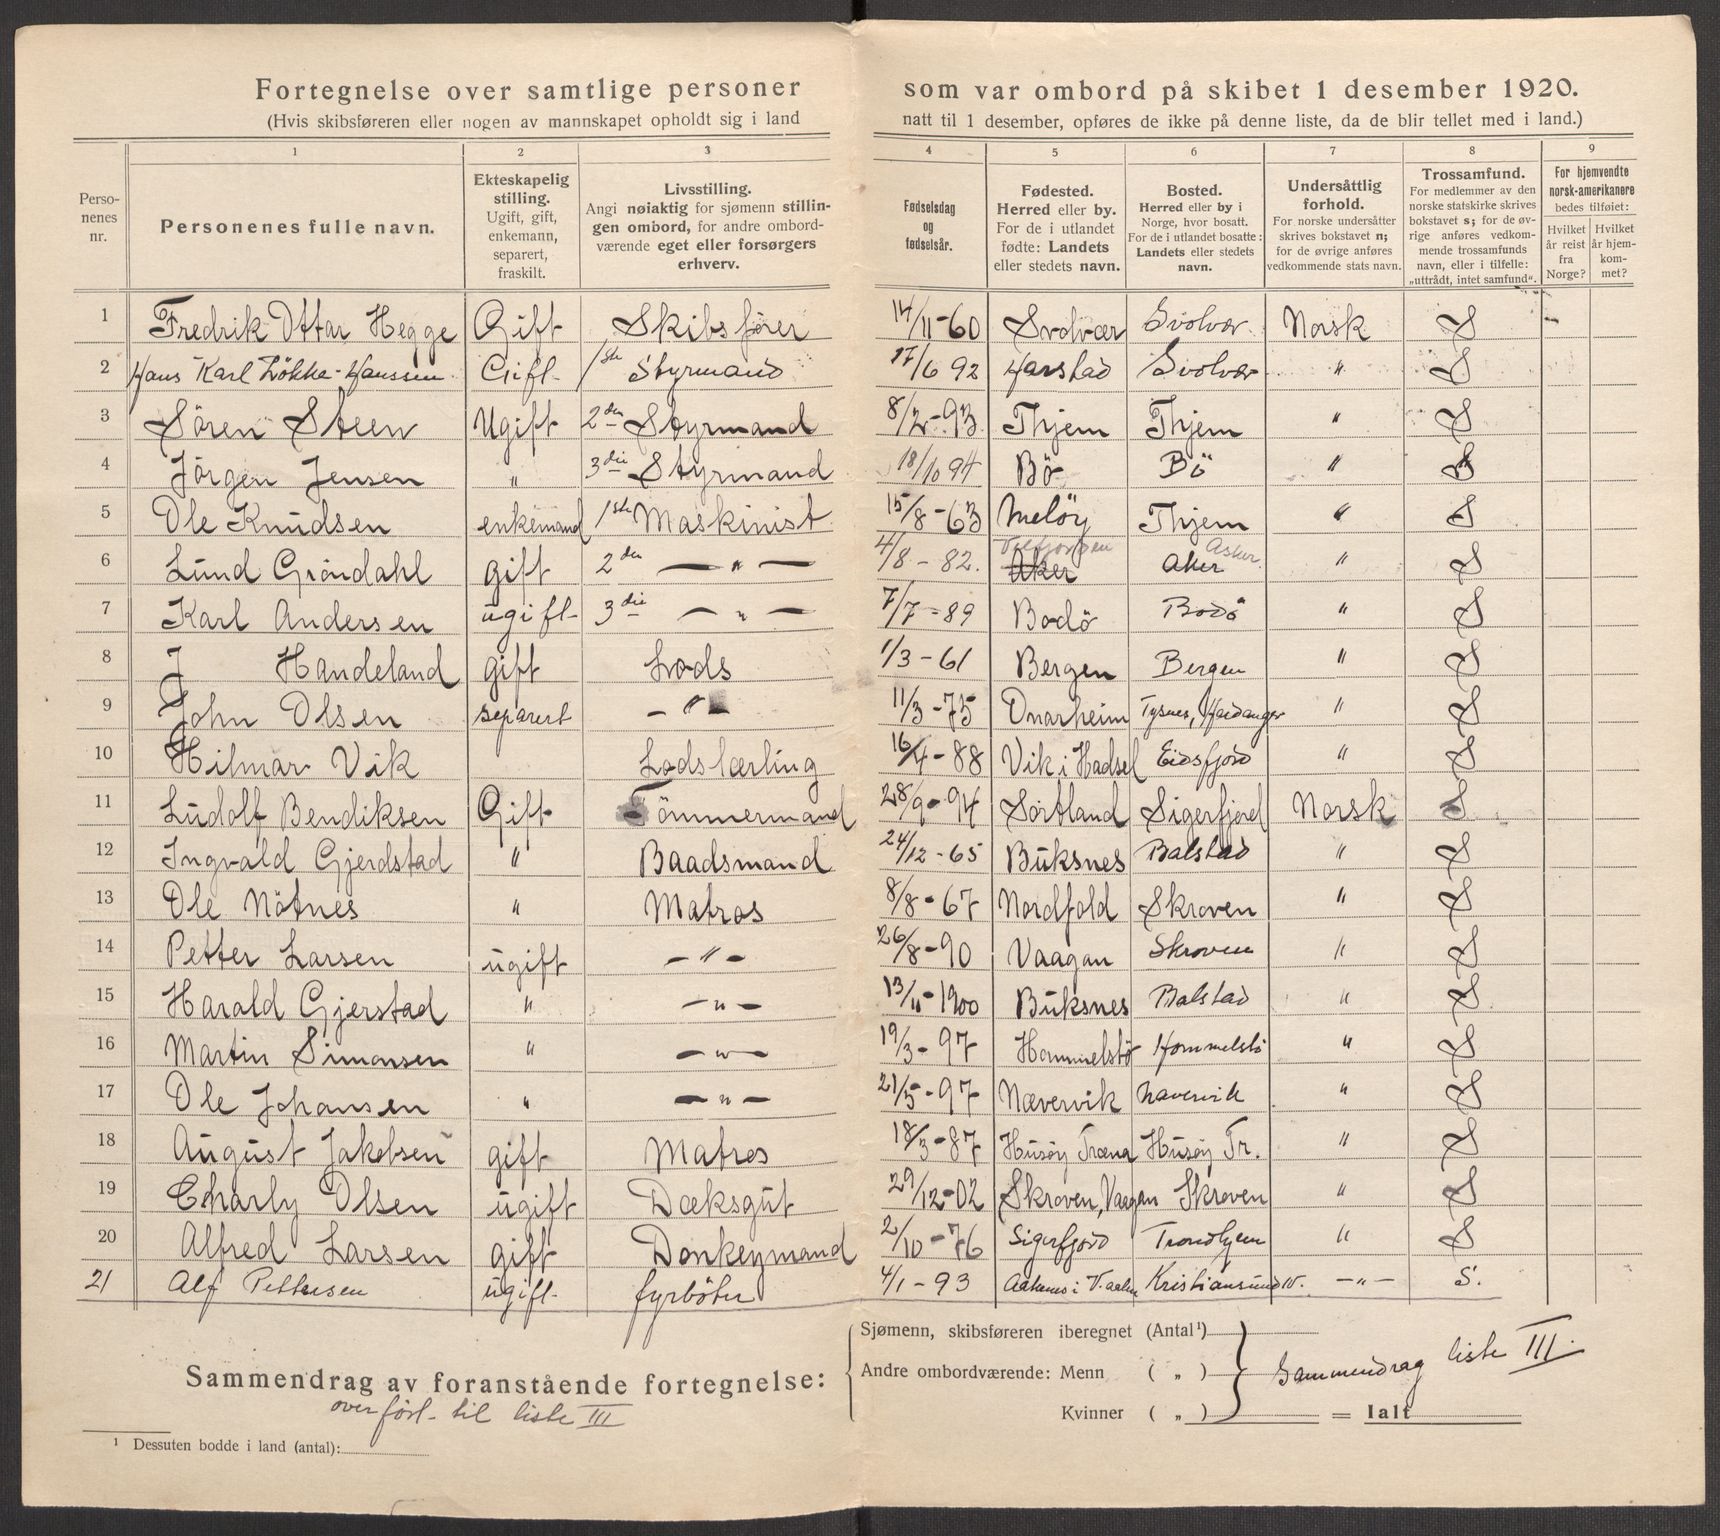 Fortegnelse over samtlige personer som var ombord på skibet 1 desember 1920.
(Hvis skibsføreren eller nogen av mannskapet opholdt sig i land natt til 1 desember, opføres de ikke på denne liste, da de blir tellet med i land.)
1 2 3 4 5 6 7 8 9
Personenes nr.
Personenes fulle navn.
Ekteskapelig stilling. Ugift, gift, enkemann, separert, fraskilt.
Livsstilling. Angi nøiaktig for sjømenn stillingen ombord, for andre ombordværende eget eller forsørgers erhverv.
Fødselsdag og fødselsår.
Fødested. Herred eller by. For de i utlandet fødte: Landets eller stedets navn.
Bosted. Herred eller by i Norge, hvor bosatt. For de i utlandet bosatte: Landets eller stedets navn.
Undersåttlig forhold. For norske undersåtter skrives bokstavet n; for de øvrige anføres vedkommende stats navn.
Trossamfund. For medlemmer av den norske statskirke skrives bokstavet s; for de øvrige anføres vedkommende trossamfunds navn, eller i tilfelle: „uttrådt, intet samfund".
For hjemvendte norsk-amerikanere bedes tilføiet:
Hvilket år reist fra Norge?
Hvilket år hjemkommet?
1 Fredrik Ottar Hegge Gift Skibsfører 14/11-60 Svolvær Svolvær Norsk S
2 Hans Karl Løkke-Hanssen Gift 1ste Styrmand 17/6 92 Harstad Svolvær " S
3 Sören Steen Ugift 2den Styrmand 8/2-93 Thjem Thjem " S
4 Jörgen Jensen " 3die Styrmand 18/10 94 Bö Bö " S
5 Ole Knudsen enkemand 1ste Maskinist 15/8-63 Meløy Thjem " S
6 Lund Gröndahl gift 2den — " — 4/8-82. Aker Velfjorden Aker Asker. " S
7 Karl Andersen ugift 3die — " — 7/7-89 Bodö Bodö " S
8 J Handeland gift Lods 1/3-61 Bergen Bergen " S
9 John Olsen separert - " - 11/3-75 Onarheim Tysnes, Hardanger " S
10 Hilmar Vik Lodslærling 16/4-88 Vik i Hadsel Eidsfjord " S
11 Ludolf Bendiksen Gift Tömmermand 28/9-94 Sortland Sigerfjord Norsk S
12 Ingvald Gjerdstad " Baadsmand 24/12-65 Buksnes Balstad " S
13 Ole Nötnes " Matros 8/8-67 Nordfold Skroven " S
14 Petter Larsen ugift - " - 26/8-90 Vaagan Skroven " S
15 Harald Gjerstad " - " - 13/11-1900 Buksnes Balstad " S
16 Martin Simonsen " - " - 19/3-97 Hommelstö Hommelstö " S
17 Ole Johansen " - " - 21/5-97 Nævervik Navervik " S
18 August Jakobsen gift Matros 18/3-87 Husöy Træna Husöy Tr. " S
19 Charly Olsen ugift Dæksgut 29/12-02 Skroven, Vaagan Skroven " S
20 Alfred Larsen gift Donkeymand 2/10-76 Sigerfjord Trondhjem " S
21 Alf Pettersen ugift fyrböter 4/1-93 Kristiansund N. - " - S.
Sammendrag av foranstående fortegnelse:
overført til liste III
Sjømenn, skibsføreren iberegnet (Antal¹)
Andre ombordværende: Menn ( „ )
Kvinner ( „ )
= Ialt
Sammendrag liste III.
¹ Dessuten bodde i land (antal):